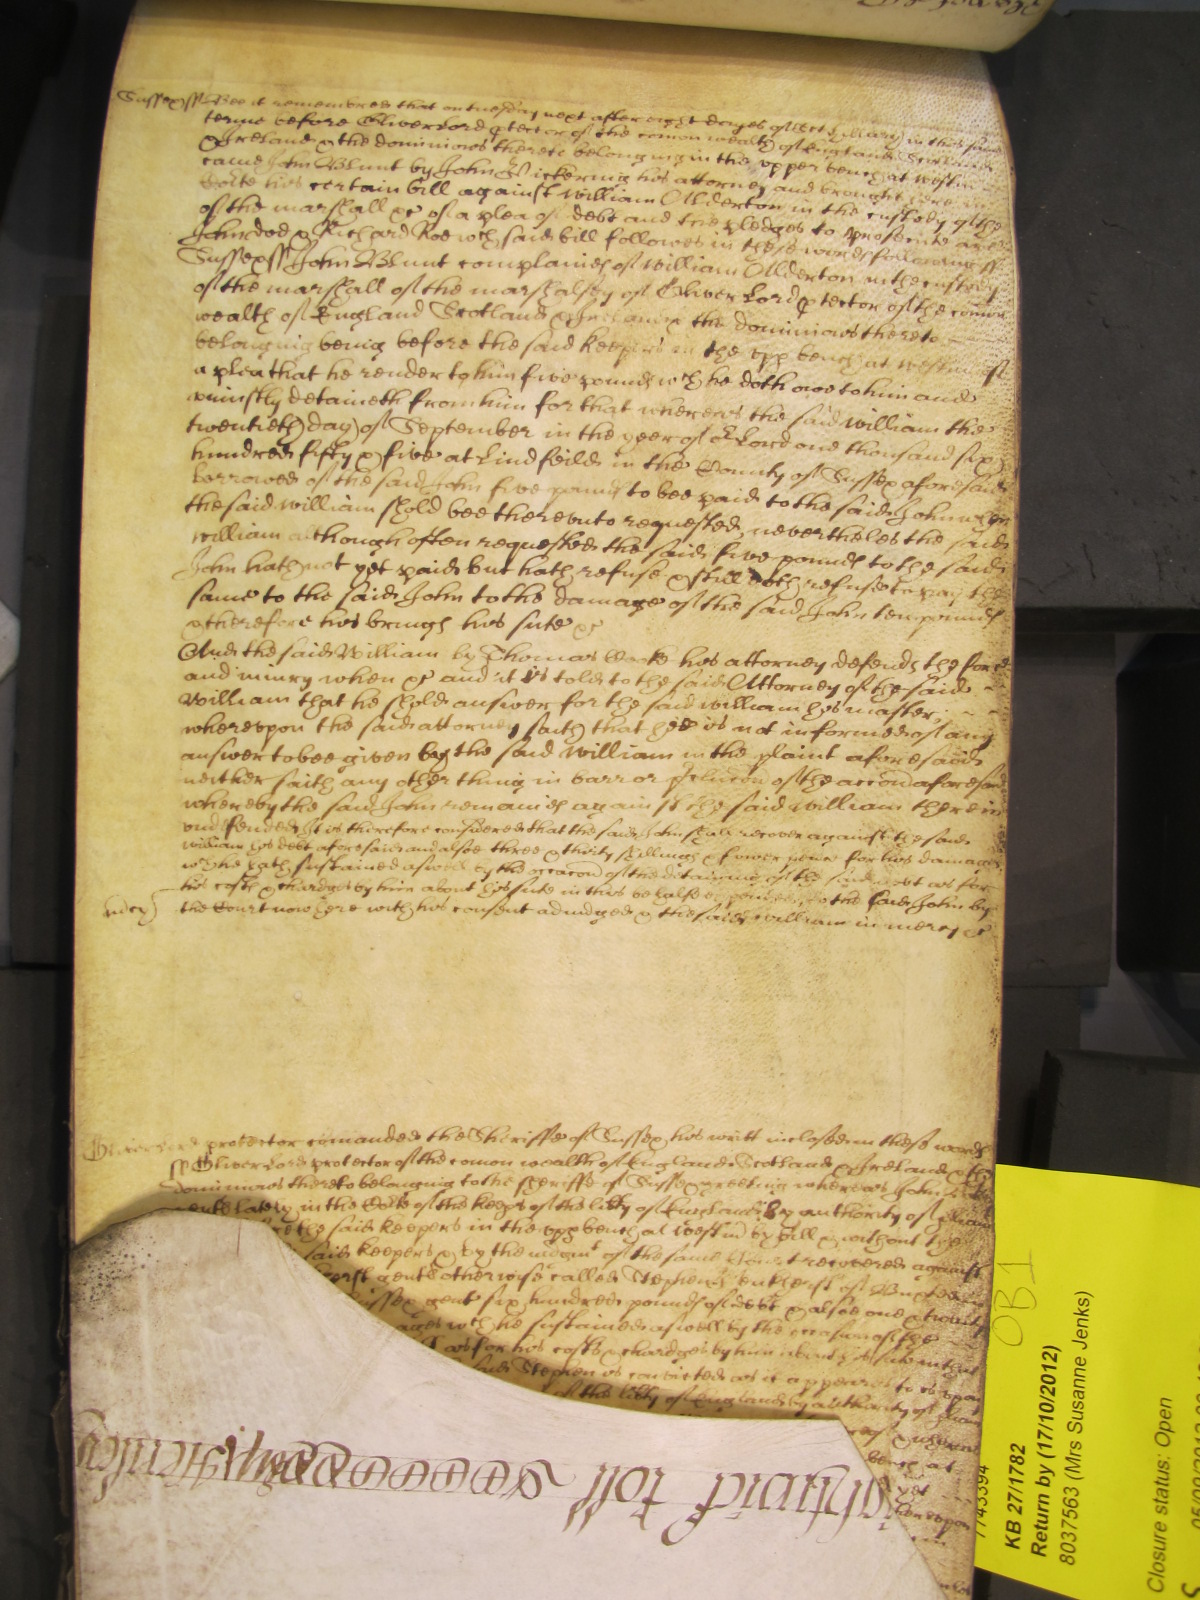 Sussex ss Bee it remembred that on tuesday next after eight dayes of St Hillary in this same
terme before Oliver Lord Protector of the comon wealth of England Scotland
& Ireland & the dominions thereto belonging in the upper bench at westm
came John Blunt by John Pickering his attorney and brought here in
Court his certain bill against William Alderton in the custody of the
of the marshall &c of a plea of debt and the pledges to prosecute are
John doo & Richard Roe wch said bill followes in these words following ss
Sussex ss John Blunt complaines of William Alderton in the custody
of the marshall of the marshalsey of Oliver Lord Protector of the comon
wealth of England Scotland & Ireland & the dominions thereto
belonging being before the said keepers in the upp bench at westm of
a plea that he render to him five pounds wch he doth owe to him and
uniustly detaineth from him for that whereas the said William the
twentieth day of September in the yeer of or Lord one thousand six
hundred fifty & five at Lindfeild in the County of Sussex aforesaid
borrowed of the said John five pounds to bee paid to the said John when
the said William shold bee thereunto requested, neverthelesse the said
William although often requested the said five pounds to the said
John hath not yet paid but hath refuse & still doth refuse to pay the
same to the said John to the damage of the said John ten pounds
& therefore hee brings his sute &c
And the said William by Thomas his attorney defends the force
and iniury when &c and it is told to the said Attorney of the said
William that he shold answer for the said William his master;
whereupon the said attorney saith that hee is not informed of any
answer to bee given by the said William in the plaint aforesaid
neither saith any other thing in barr or of the accon aforesaid
whereby the said John remaines against the said William therein
undefended It is therefore considered that the said John shall recover against the said
William his debt aforesaid and alsoe three & thirty shillings & fower pence for his damages
wch he hath sustained aswell by the occacon of the detaining of the said debt as for
his costs & chardges by him about his sute in this behalfe expended, to the said John by
mcy the Court now here with his consent adiudged & the said William in mercy &c
Oliver Lord protector comanded the Sheriffe of Sussex his writt inclosed in these words
ss Oliver Lord protector of the comon wealth of England Scotland & Ireland & the
dominions thereto belonging to the sheriffe of Sussex greeting whereas John
lately in the Court of the keeps of the libty of England by authority of
the said keepers in the upp bench at westm by bill & without the
said keepers & by the iudgmt of the same Court recovered against
gent otherwise called Stephen of
Sussex gent six hundred pounds of debt & alsoe one & twenty
wch he sustained aswell by the occasion of the
as for his costs & chardges by him about his sute in that
said Stephen is convicted as it appeares to us upon
of the libty of England by authority of
bench at
KB 27/1782
Return by (17/10/2012)
8037563 (Mrs Susanne Jenks)
Closure status: Open
OB 1